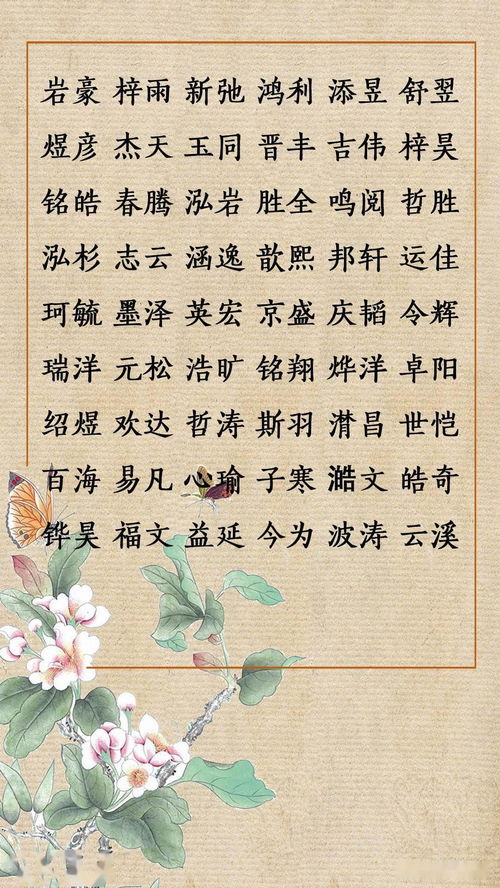 岩豪 梓雨 新弛 鸿利 添昱 舒翌
煜彦 杰天 玉同 晋丰 吉伟 梓昊
铭皓 春腾 泓岩 胜全 鸣阅 哲胜
泓杉 志云 涵逸 歆熙 邦轩 运佳
珂毓 墨泽 英宏 京盛 庆韬 令辉
瑞洋 元松 浩旷 铭翔 烨洋 卓阳
绍煜 欢达 哲涛 斯羽 潸昌 世恺
百海 易凡 心瑜 子寒 澔文 皓奇
铧昊 福文 益延 今为 波涛 云溪